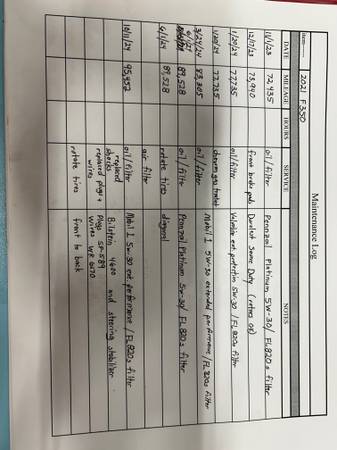 Maintenance Log
Item 2021 F350
DATE MILEAGE HOURS SERVICE NOTES
11/1/23 72,435 oil/filter Pennzoil Platinum 5W-30/ FL820s filter
12/17/23 73,940 front brake pads Duralast Severe Duty
1/20/24 77,735 oil/filter Valvoline ext. protection 5w-30 / FL820s filter
1/20/24 77,735 chevron gas treatment
3/24/24 83,305 oil/filter Mobil 1 5W-30 extended performance /FL820s filter
6/1/24 89,528 oil/filter Pennzoil Platinum 5w-30/ FL820s filter
6/1/24 89,528 rotate tires diagonal
air filter
10/11/24 95,952 oil/filter Mobil 1 5w-30 ext. performance/ FL820s filter
replaced shocks Bilstein 4600 and steering stabilizer
replaced plugs & wires Plugs SP-589
wires WR 6470
rotate tires front to back